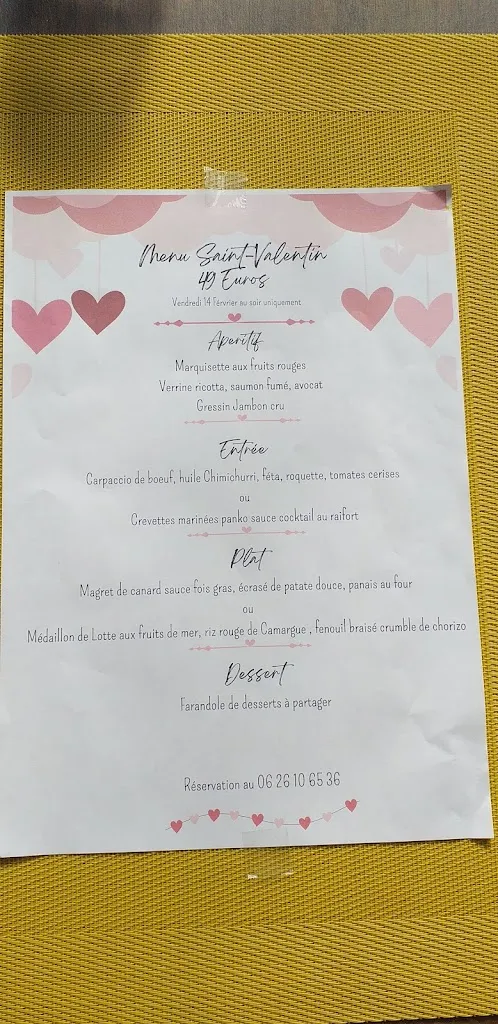 Menu Saint-Valentin
49 Euros
Vendredi 14 Février au soir uniquement
Aperitif
Marquisette aux fruits rouges
Verrine ricotta, saumon fumé, avocat
Gressin Jambon cru
Entrée
Carpaccio de boeuf, huile Chimichurri, féta, roquette, tomates cerises
ou
Crevettes marinées panko sauce cocktail au raifort
Plat
Magret de canard sauce fois gras, écrasé de patate douce, panais au four
ou
Médaillon de Lotte aux fruits de mer, riz rouge de Camargue , fenouil braisé crumble de chorizo
Dessert
Farandole de desserts à partager
Réservation au 06 26 10 65 36